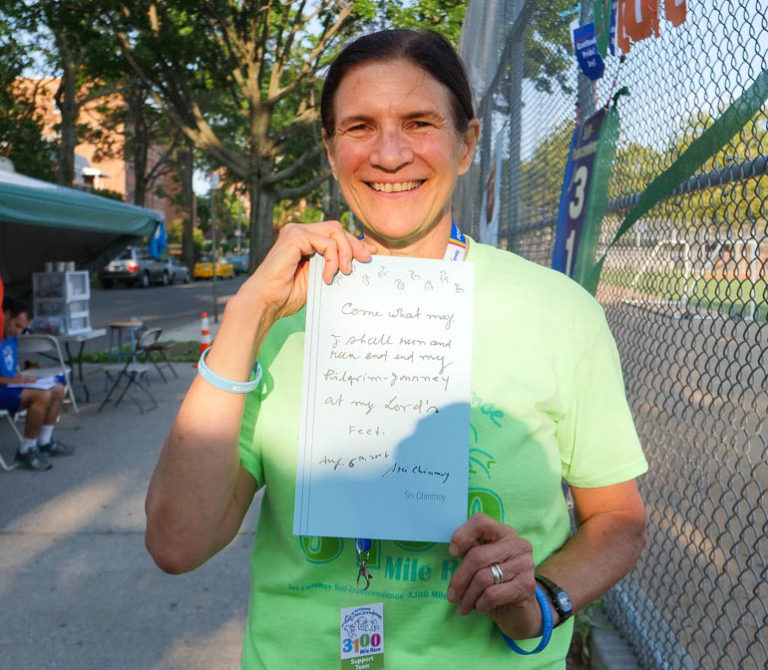 Come what may
I shall run and
run and end my
Pilgrim-Journey
at my Lord's
Feet.
Aug. 6th, 2006
Sri Chinmoy
Sri Chinmoy
Mile
Sri Chinmoy Self-Transcendence 3,100 Mile
3100
Mile Race
Support
Team
3
1